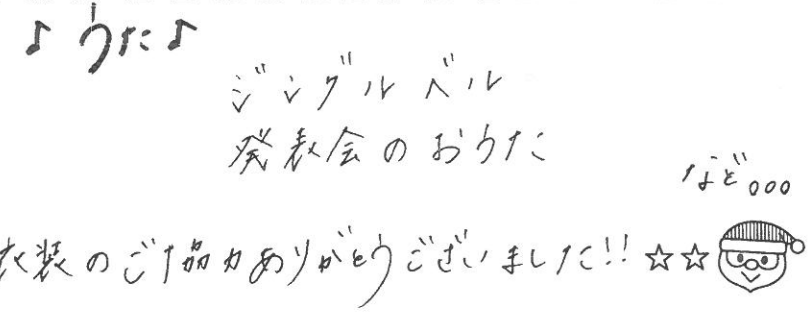 ♪うた♪
ジングルベル
発表会のおうた
など。。。
衣装のご協力ありがとうございました!!☆☆